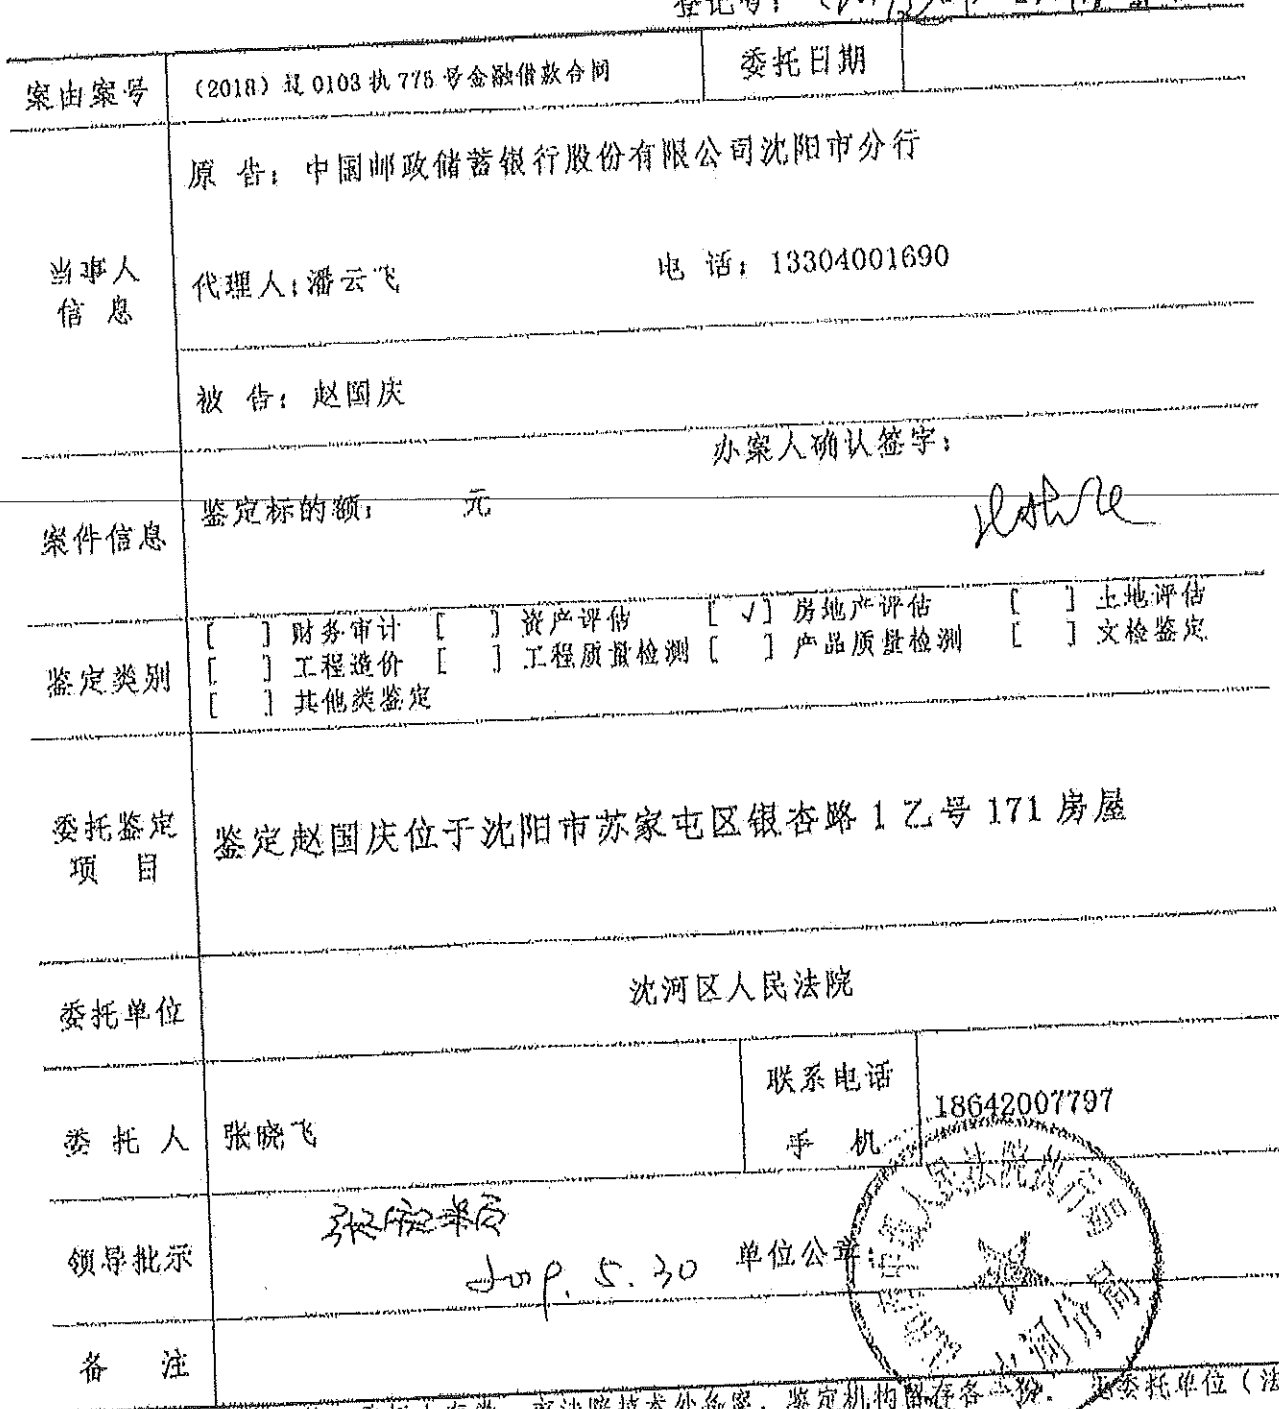 登记号：
案由案号 （2018）辽 0103 执 775 号金融借款合同 委托日期
原 告：中国邮政储蓄银行股份有限公司沈阳市分行
当事人
信 息
代理人：潘云飞 电 话：13304001690
被 告：赵国庆
办案人确认签字：
案件信息 鉴定标的额： 元
鉴定类别
[ ] 财务审计 [ ] 资产评估 [ √] 房地产评估 [ ] 土地评估
[ ] 工程造价 [ ] 工程质量检测 [ ] 产品质量检测 [ ] 文检鉴定
[ ] 其他类鉴定
委托鉴定
项 目
鉴定赵国庆位于沈阳市苏家屯区银杏路 1 乙号 171 房屋
委托单位 沈河区人民法院
委 托 人 张晓飞
联系电话
手 机
18642007797
领导批示
2019. 5. 30
单位公章：
人民法院执行局
沈河分局
备 注
鉴定机构留存各一份。 委托单位（法